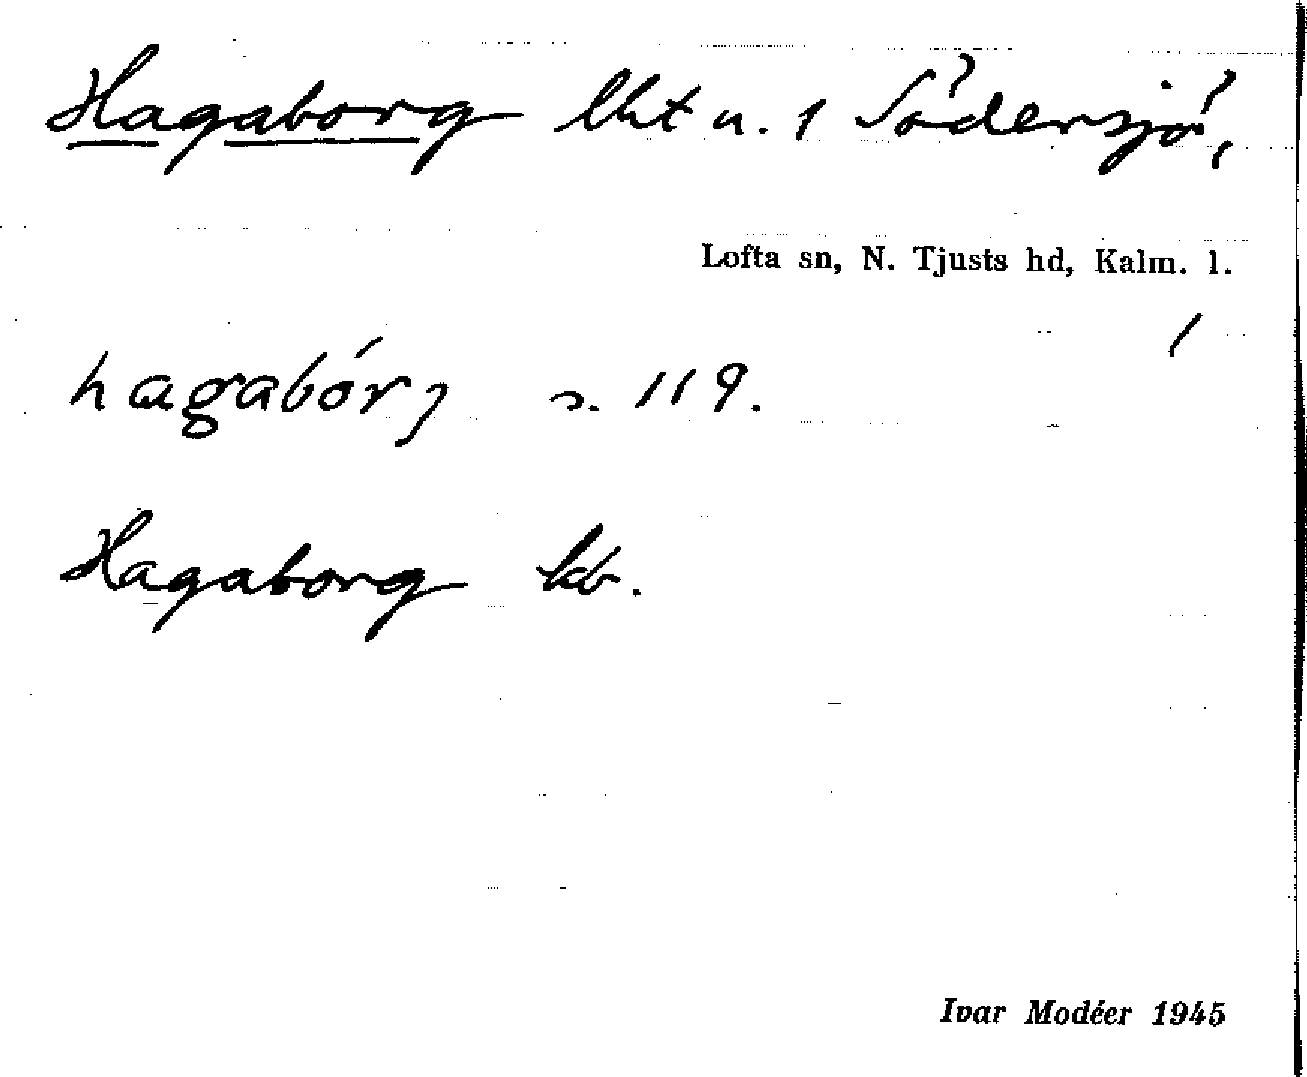 Hagaborg lht u. 1 Södersjö,
Lofta sn, N. Tjusts hd, Kalm. l.
hagabórj s. 119.
Hagaborg kb.
Ivar Modéer 1945